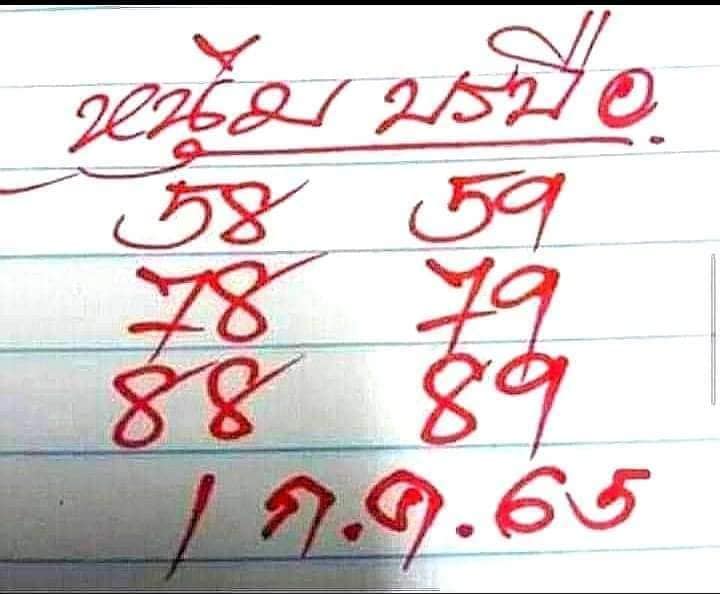 หนุ่ม บรบือ
58 59
78 79
88 89
1 ก.ค.65